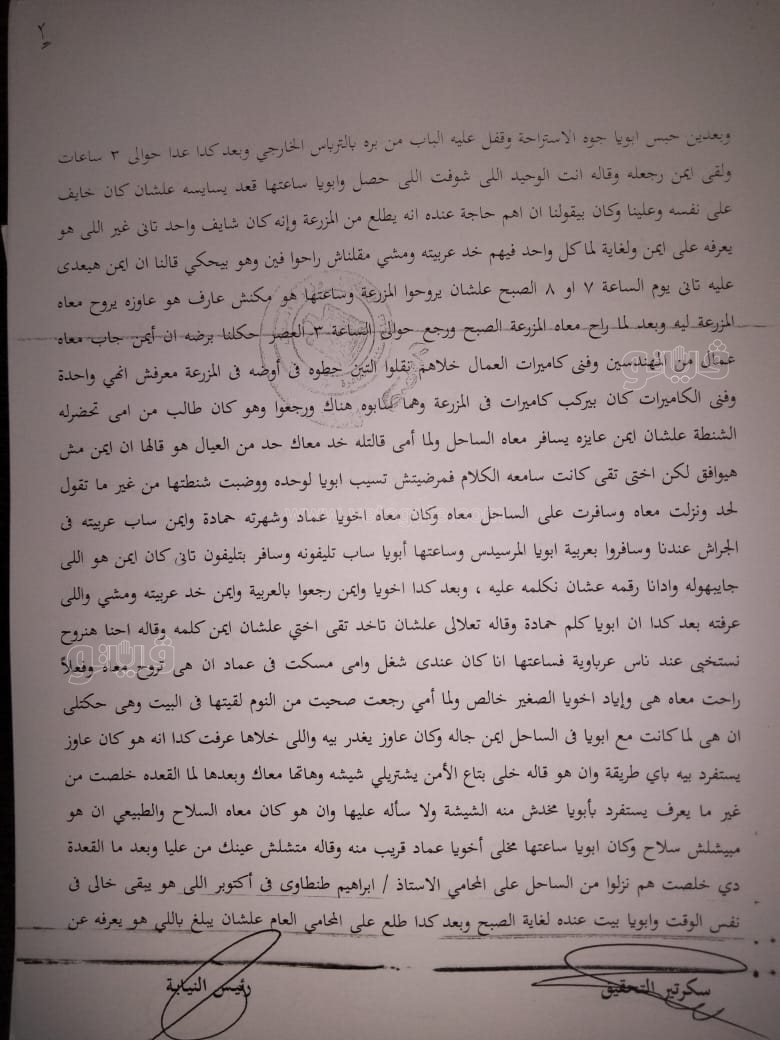 ٢
وبعدين حبس ابويا جوه الاستراحة وقفل عليه الباب من بره بالترباس الخارجي وبعد كدا عدا حوالى ٣ ساعات
ولقى ايمن رجعله وقاله انت الوحيد اللى شوفت اللى حصل وابويا ساعتها قعد يسايسه علشان كان خايف
على نفسه وعلينا وكان بيقولنا ان اهم حاجة عنده انه يطلع من المزرعة وإنه كان شايف واحد تانى غير اللى هو
يعرفه على ايمن ولغاية لما كل واحد فيهم خد عربيته ومشي مقلناش راحوا فين وهو بيحكي قالنا ان ايمن هيعدى
عليه تانى يوم الساعة ٧ او ٨ الصبح علشان يروحوا المزرعة وساعتها هو مكنش عارف هو عاوزه يروح معاه
المزرعة ليه وبعد لما راح معاه المزرعة الصبح ورجع حوالى الساعة ٣ العصر حكلنا برضه ان أيمن جاب معاه
عمال من المهندسين وفنى كاميرات العمال خلاهم نقلوا التبن حطوه فى أوضه فى المزرعة معرفش انهي واحدة
وفنى الكاميرات كان بيركب كاميرات فى المزرعة وهما سابوه هناك ورجعوا وهو كان طالب من امى تحضرله
الشنطة علشان ايمن عايزه يسافر معاه الساحل ولما أمى قالتله خد معاك حد من العيال هو قالها ان ايمن مش
هيوافق لكن اختى تقى كانت سامعه الكلام فمرضيتش تسيب ابويا لوحده ووضبت شنطتها من غير ما تقول
لحد ونزلت معاه وسافرت على الساحل معاه وكان معاه اخويا عماد وشهرته حمادة وايمن ساب عربيته فى
الجراش عندنا وسافروا بعربية ابويا المرسيدس وساعتها أبويا ساب تليفونه وسافر بتليفون تانى كان ايمن هو اللى
جايبهوله وادانا رقمه عشان نكلمه عليه ، وبعد كدا اخويا وايمن رجعوا بالعربية وايمن خد عربيته ومشي واللى
عرفته بعد كدا ان ابويا كلم حمادة وقاله تعلالى علشان تاخد تقى اختي علشان ايمن كلمه وقاله احنا هنروح
نستخبى عند ناس عرباوية فساعتها انا كان عندى شغل وامى مسكت فى عماد ان هى تروح معاه وفعلاً
راحت معاه هى وإياد اخويا الصغير خالص ولما أمي رجعت صحيت من النوم لقيتها فى البيت وهى حكتلى
ان هى لما كانت مع ابويا فى الساحل ايمن جاله وكان عاوز يغدر بيه واللى خلاها عرفت كدا انه هو كان عاوز
يستفرد بيه باي طريقة وان هو قاله خلى بتاع الأمن يشتريلي شيشه وهاتها معاك وبعدها لما القعده خلصت من
غير ما يعرف يستفرد بأبويا مخدش منه الشيشة ولا سأله عليها وان هو كان معاه السلاح والطبيعي ان هو
مبيشلش سلاح وكان ابويا ساعتها مخلى أخويا عماد قريب منه وقاله متشلش عينك من عليا وبعد ما القعدة
دي خلصت هم نزلوا من الساحل على المحامي الاستاذ / ابراهيم طنطاوى فى أكتوبر اللى هو يبقى خالى فى
نفس الوقت وابويا بيت عنده لغاية الصبح وبعد كدا طلع على المحامي العام علشان يبلغ باللي هو يعرفه عن
سكرتير التحقيق
رئيس النيابة
ڤيتو
ڤيتو